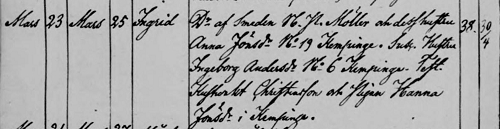 Mars 23 Mars 25 Ingrid Dr. af Smeden N. P. Möller och dess hustru 38. 30/4
Anna Jönsdr No 19 Kempinge. Susc. Hustru
Ingeborg Andersdr No 6 Kempinge. Test.
Christensson och Pigan Hanna
Jönsdr i Kempinge.